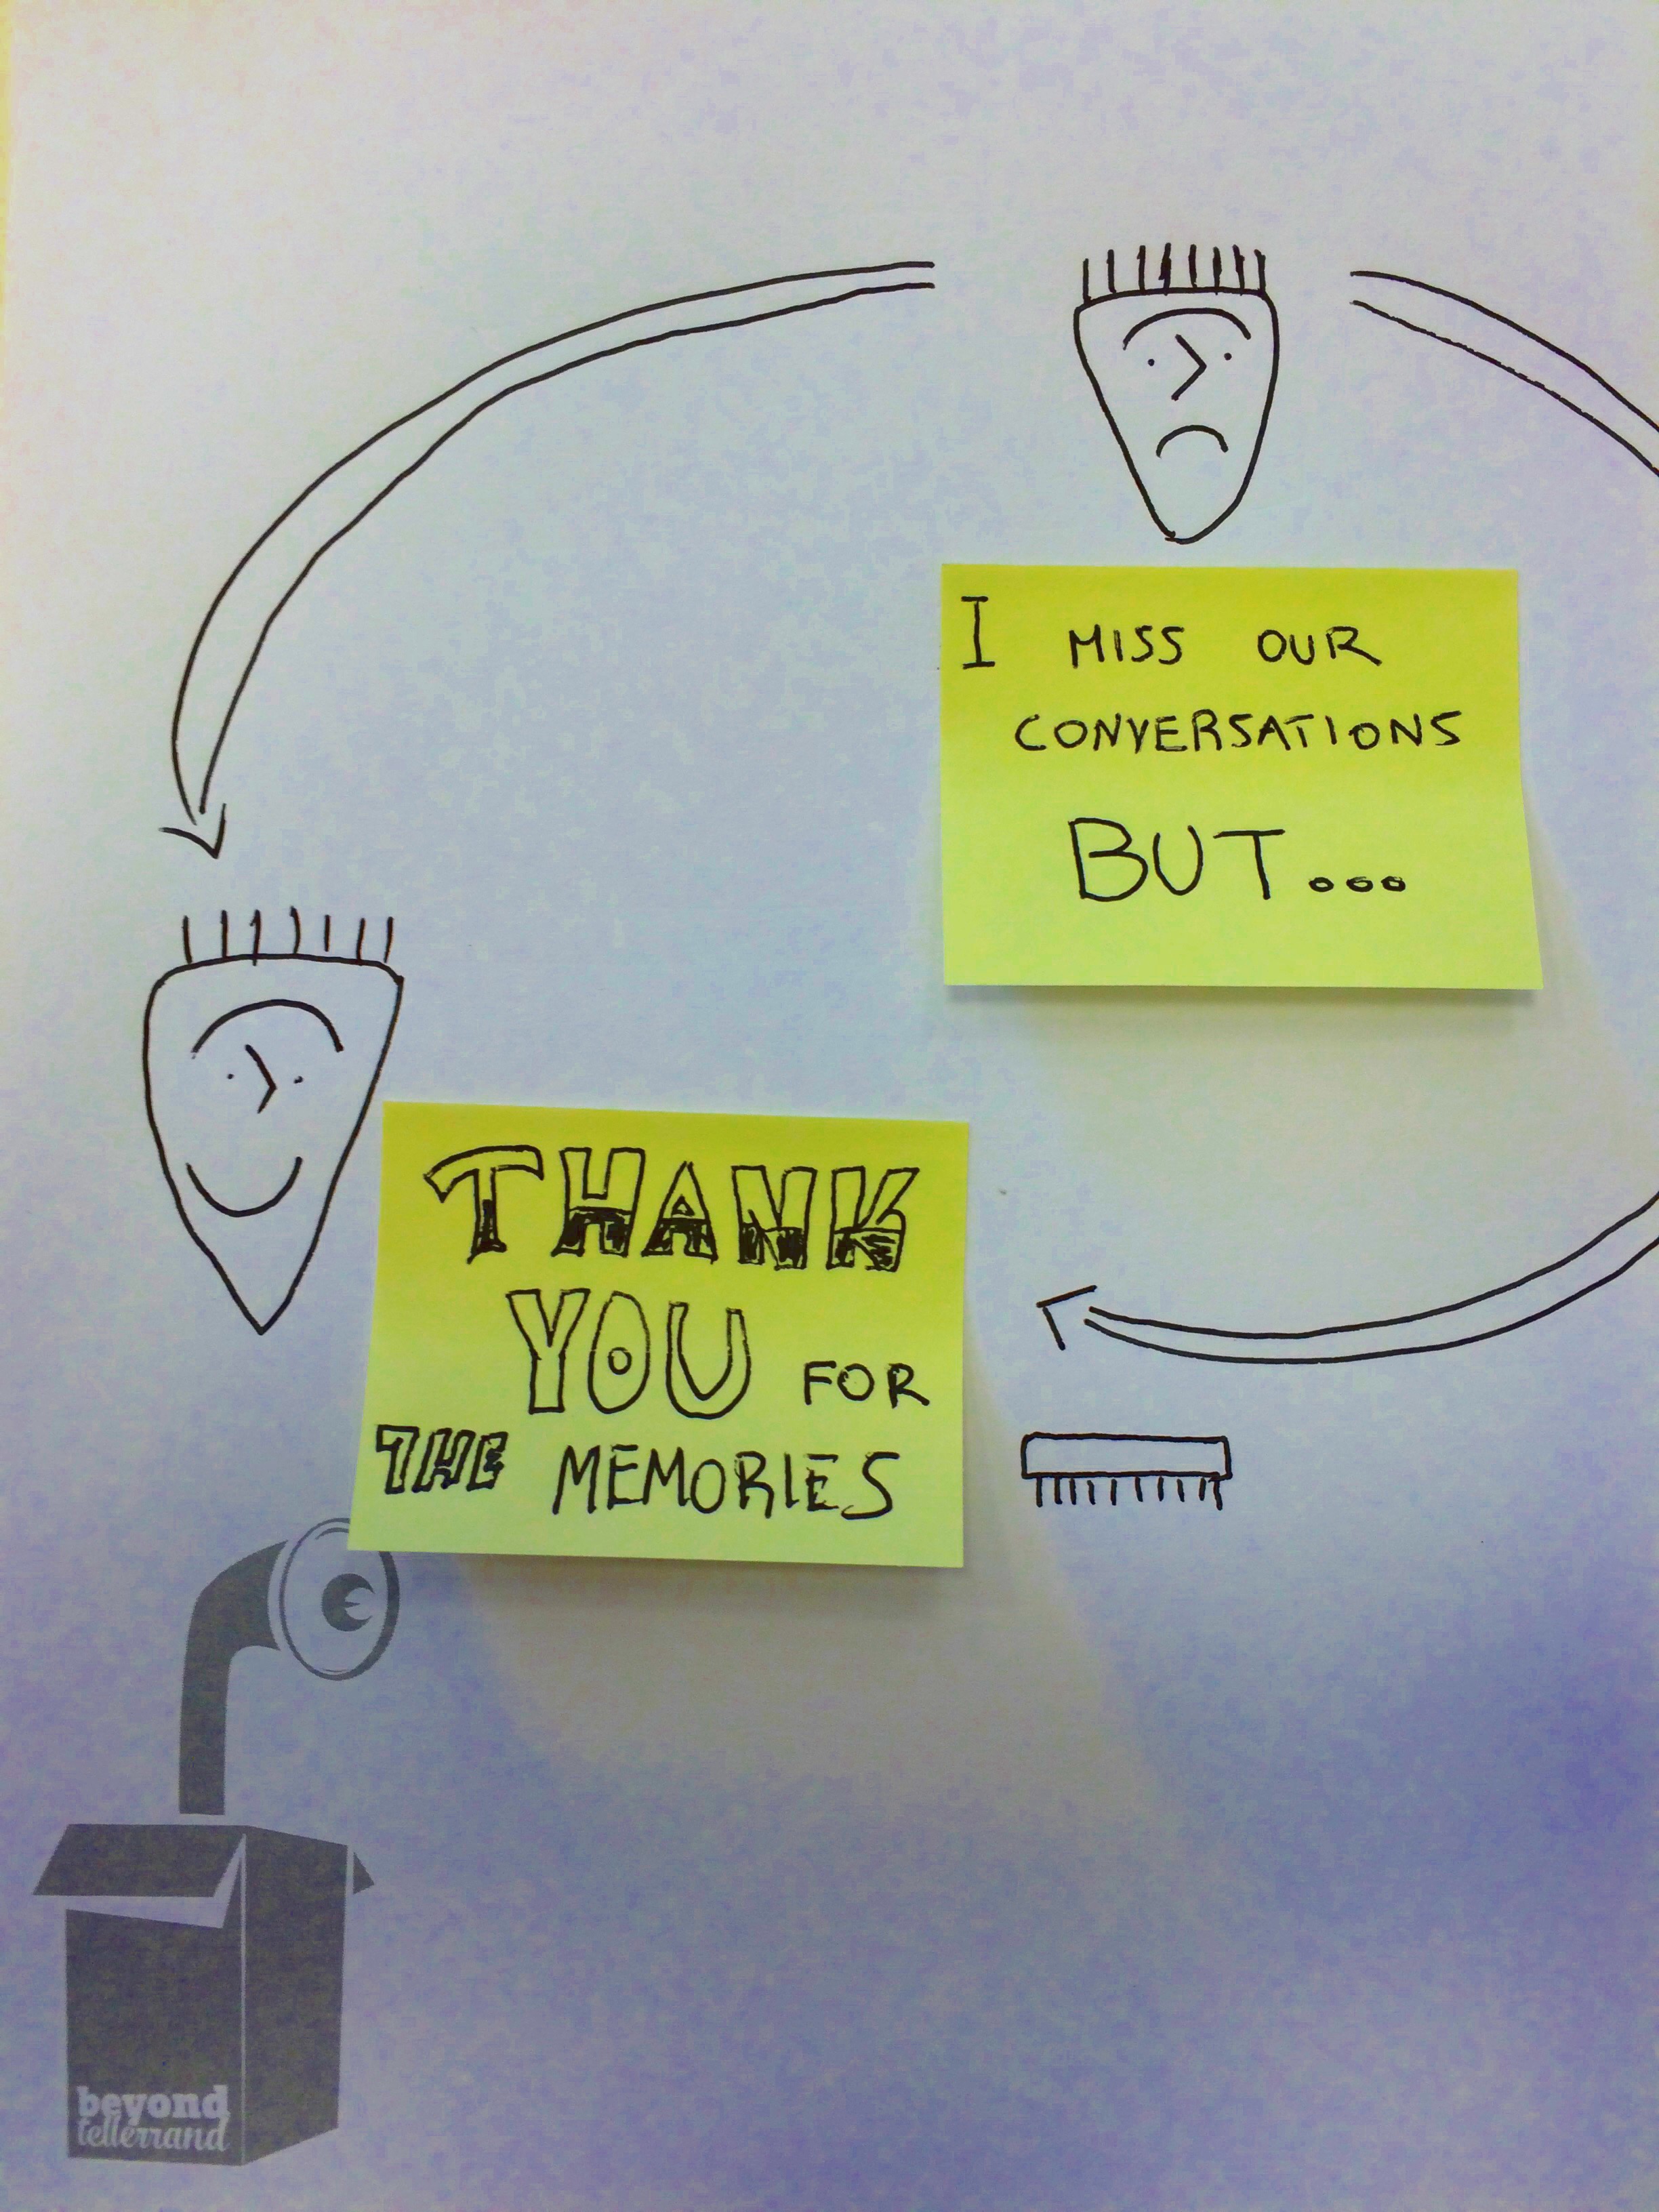 I MISS OUR
CONVERSATIONS
BUT...
THANK
YOU FOR
THE MEMORIES
beyond
tellerrand